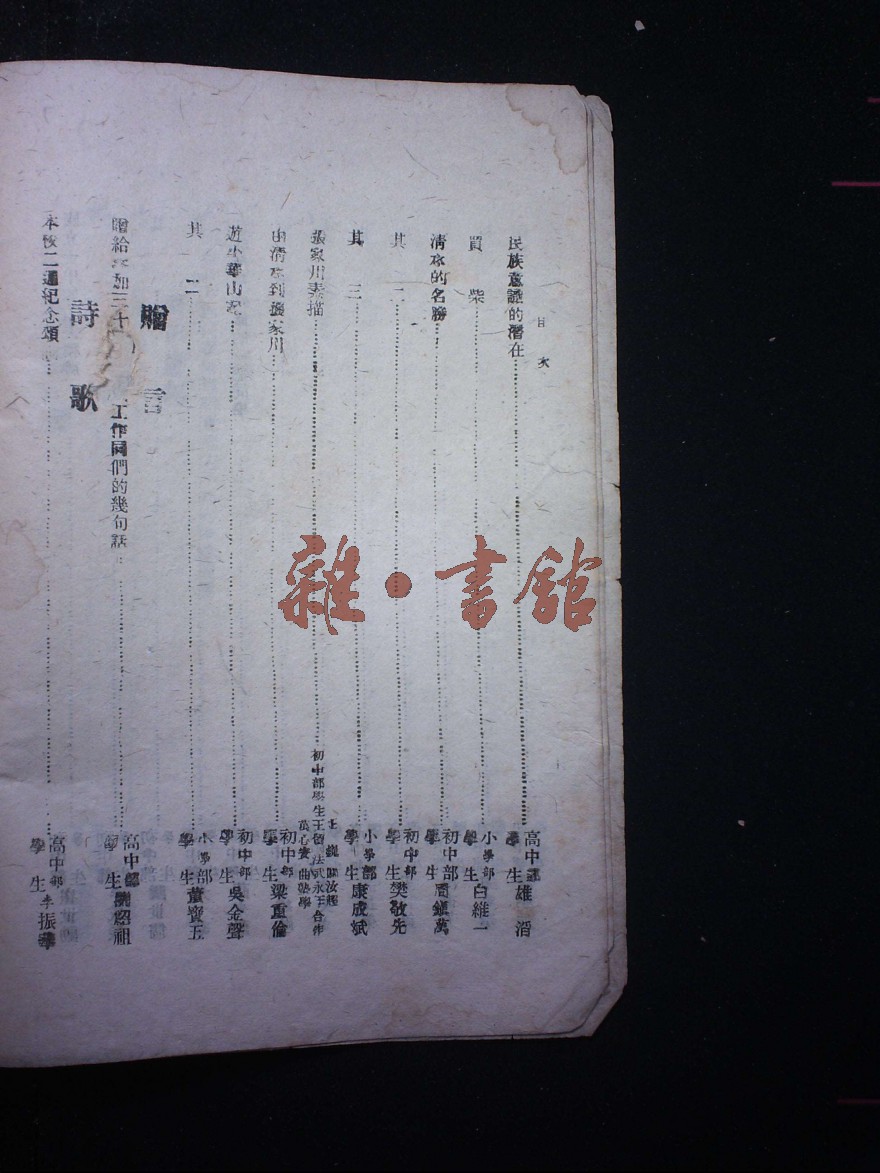 目次
民族意識的潛在 高中部學生雄潛
買柴 小學部學生白維一
清水的名勝 初中部學生周鎮萬
其二 初中部學生樊敬先
其三 小學部學生康成斌
張家川素描 初中部學生王 法武永王合作
由清水到張家川 初中部學生梁重倫
遊小華山記 初中部學生吳金聲
其二 小學部學生董寶玉
贈言
贈給參加三十 工作同們的幾句話 高中部學生 紹祖
詩歌
本校二週紀念頌 高中部學生李振華
雜·書館